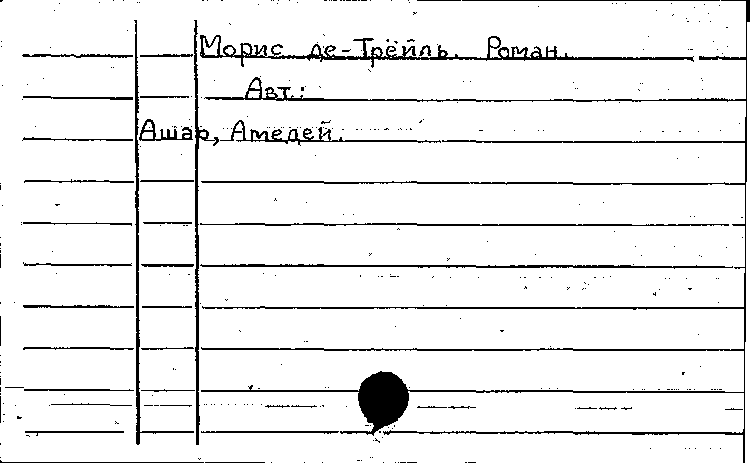 Морис де-Трёйль. Роман.
Авт.:
Ашар, Амедей.